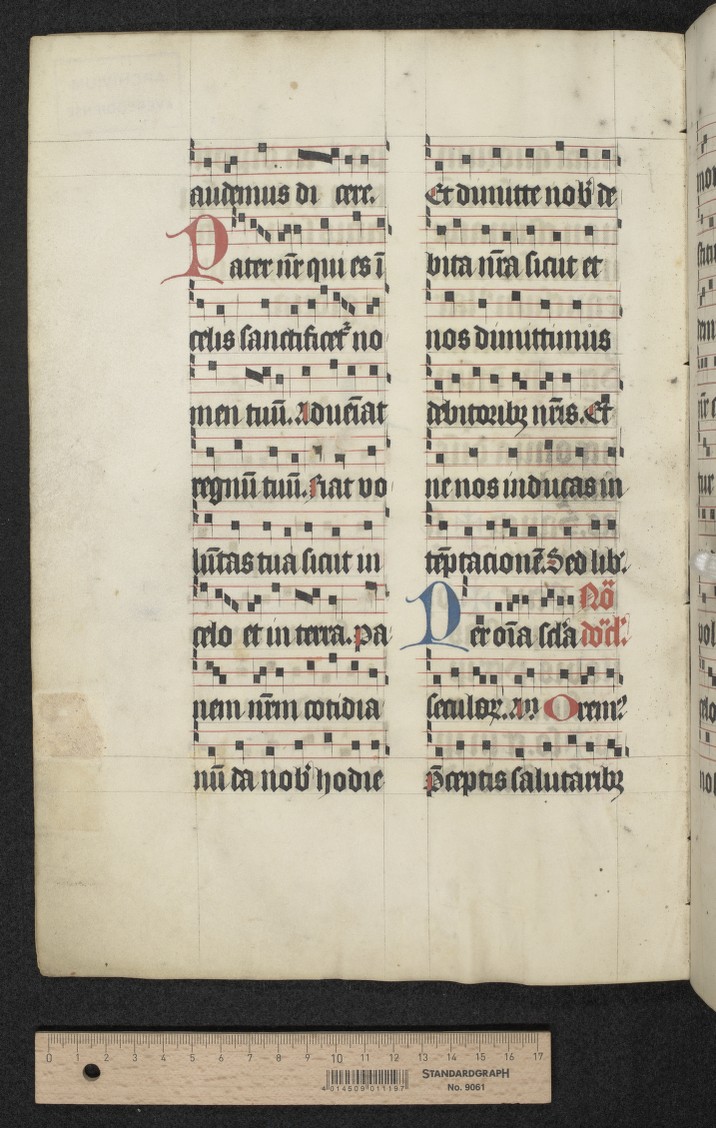 audemus di cere.
Pater nr̄ qui es ī
celis sanctificet᷑ no
men tuū. Adueniat
regnū tuū. Fiat vo
lūtas tua sicut in
celo et in terra. pa
nem nr̄m cotidia
nū da nob' hodie
Et dimitte nob' de
bita nr̄a sicut et
nos dimittimus
debitoribꝫ nr̄is. Et
ne nos inducas in
tēptacionē. Sed lib'.
Per oīa scl̄a
seculoꝝ. Am̄ Orem'
p̄ceptis salutaribꝫ
0 1 2 3 4 5 6 7 8 9 10 11 12 13 14 15 16 17
4 014509 011197
STANDARDGRAPH
No. 9061